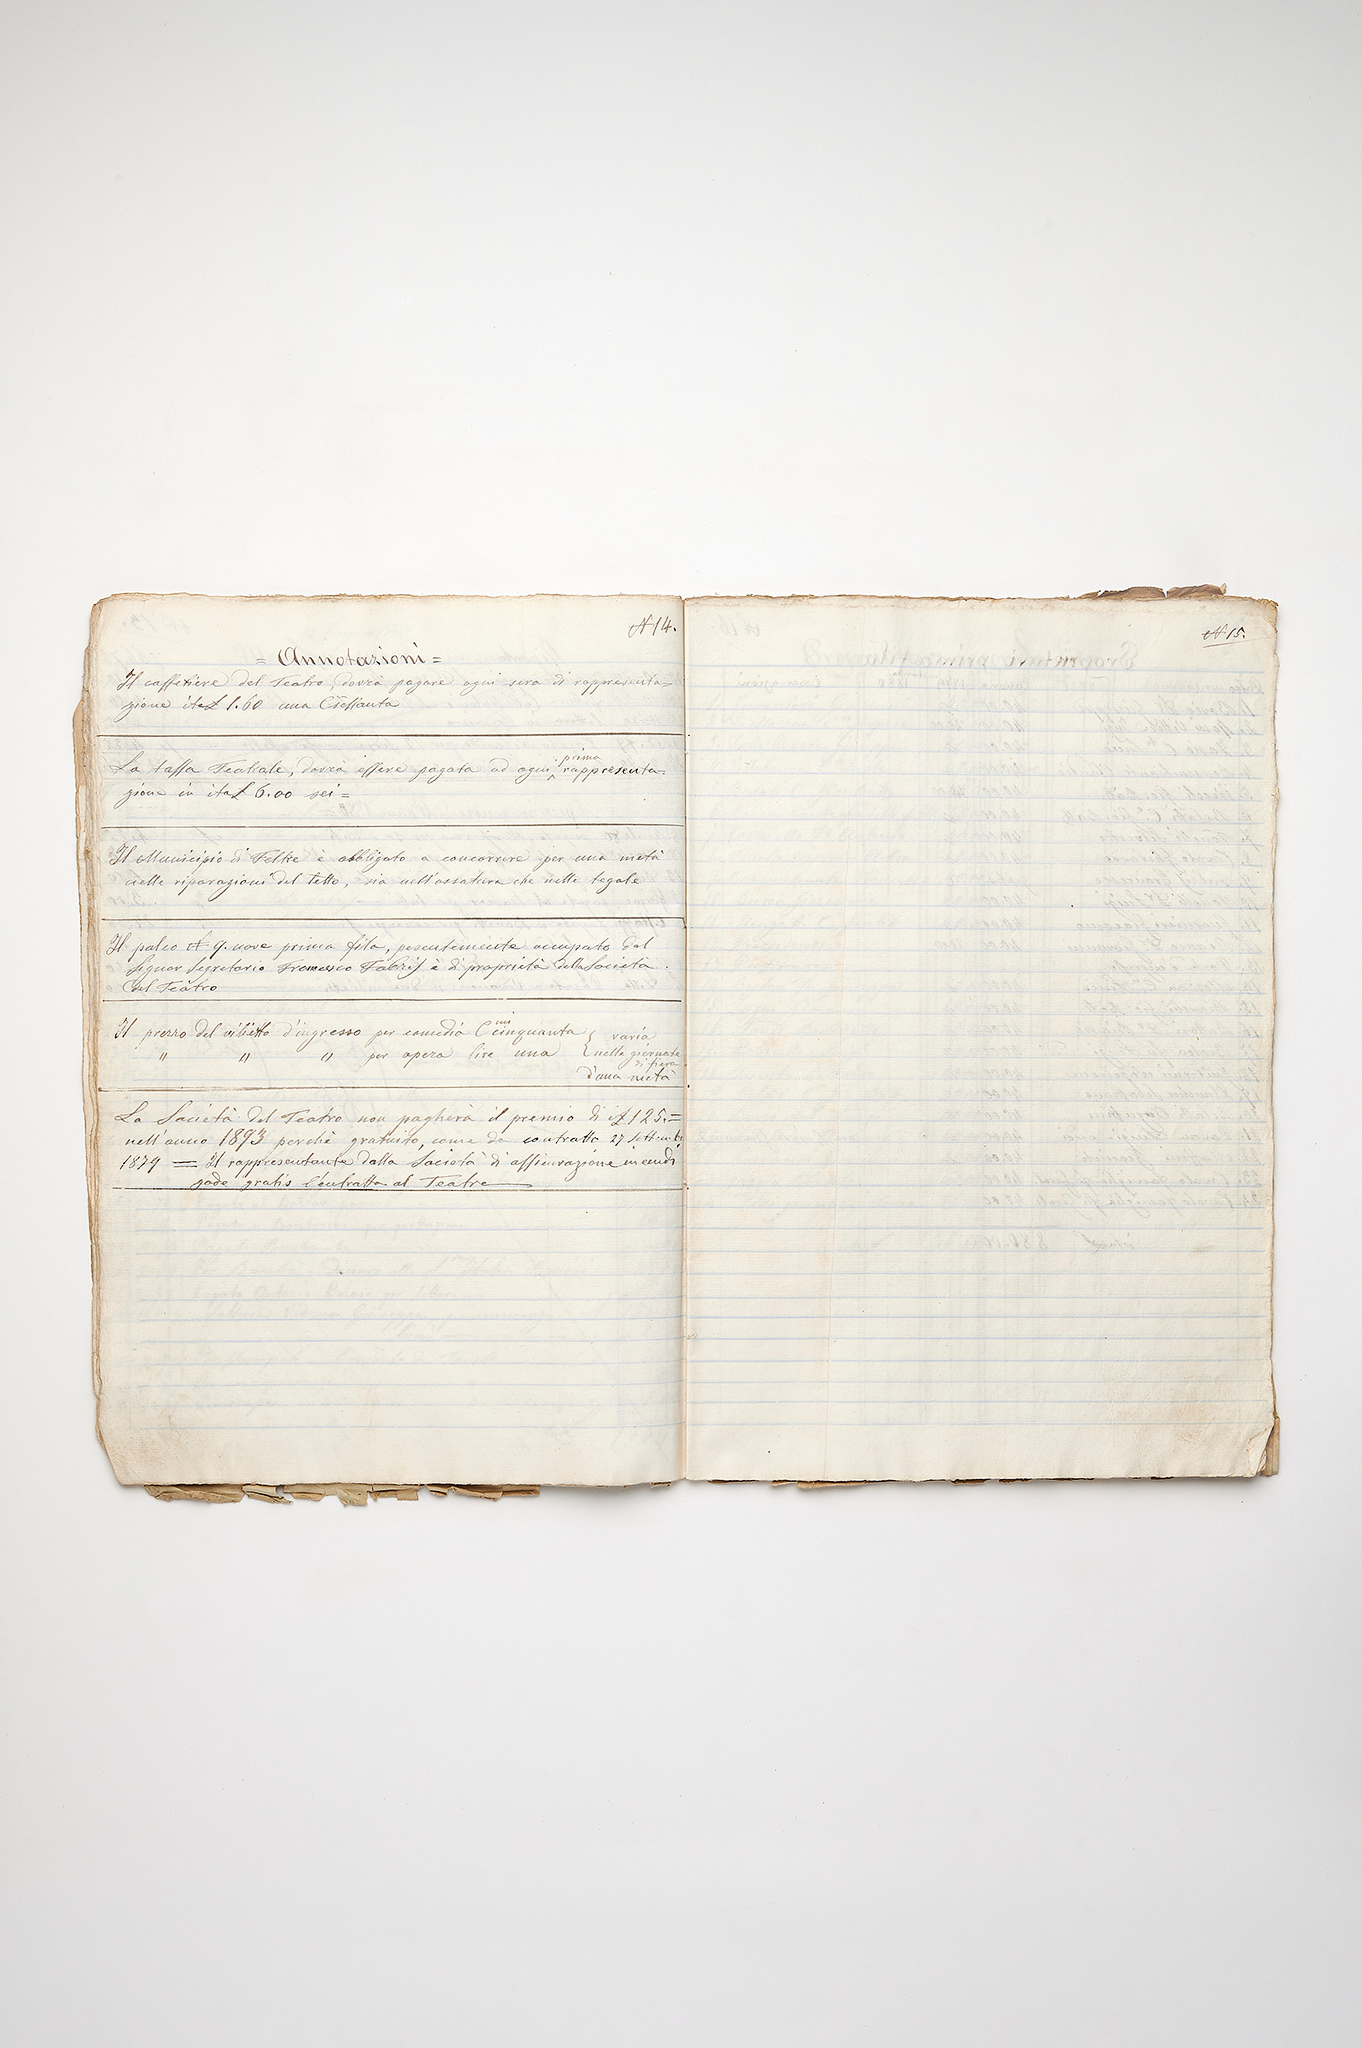 N 14.
= Annotazioni =
Il caffettiere del Teatro, dovrà pagare ogni sera di rappresenta=
zione ital£ 1.60 una e sessanta
La tassa Teatrale, dovrà essere pagata ad ogni prima rappresenta=
zione in ital£ 6.00 sei =
Il Municipio di Feltre è obbligato a concorrere per una metà
nelle riparazioni del tetto, sia nell'ossatura che nelle tegole
Il palco N 9. nove prima fila, presentemente occupato dal
Signor Segretario Francesco Fabris è di proprietà della Società
del Teatro
Il prezzo del viglietto d'ingresso per comedia Cmi cinquanta
" " " per opera lire una
{ varia
nelle giornate
di fiera
d'una metà
La Società del Teatro non pagherà il premio di i£ 125.=
nell'anno 1893 perchè gratuito, come da contratto 27 settembr
1879 = Il rappresentante dalla Società di assicurazione incendi
gode gratis l'entratta al Teatro
N 15.